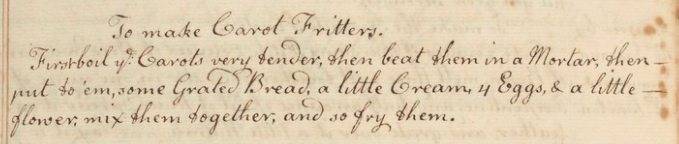 To make Carot Fritters.
First boil yᵉ Carots very tender, then beat them in a Mortar, then
put to 'em, some Grated Bread, a little Cream, 4 Eggs, & a little
flower, mix them together, and so fry them.